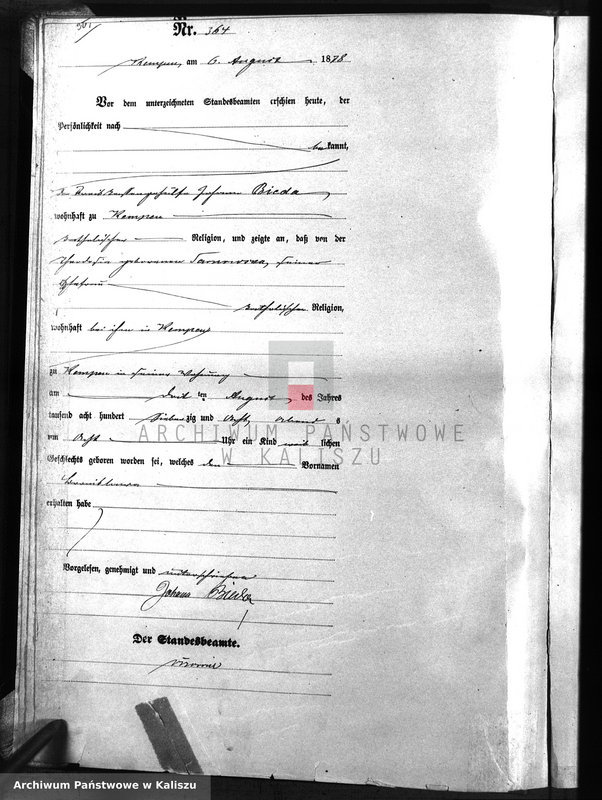 Nr. 364
Kempen, am 6. August 1878
Vor dem unterzeichneten Standesbeamten erschien heute, der
Persönlichkeit nach
bekannt,
Johann Bieda
wohnhaft zu Kempen
katholischer Religion, und zeigte an, daß von der
geborenen seiner
Ehefrau
katholischer Religion,
wohnhaft bei ihm in Kempen
zu Kempen in seiner Wohnung
am drei ten August des Jahres
tausend acht hundert siebenzig und acht, Abend s
um acht Uhr ein Kind weib lichen
Geschlechts geboren worden sei, welches den Vornamen
erhalten habe
Vorgelesen, genehmigt und unterschrieben
Johann Bieda
Der Standesbeamte.
ARCHIWUM PAŃSTWOWE
W KALISZU
Archiwum Państwowe w Kaliszu